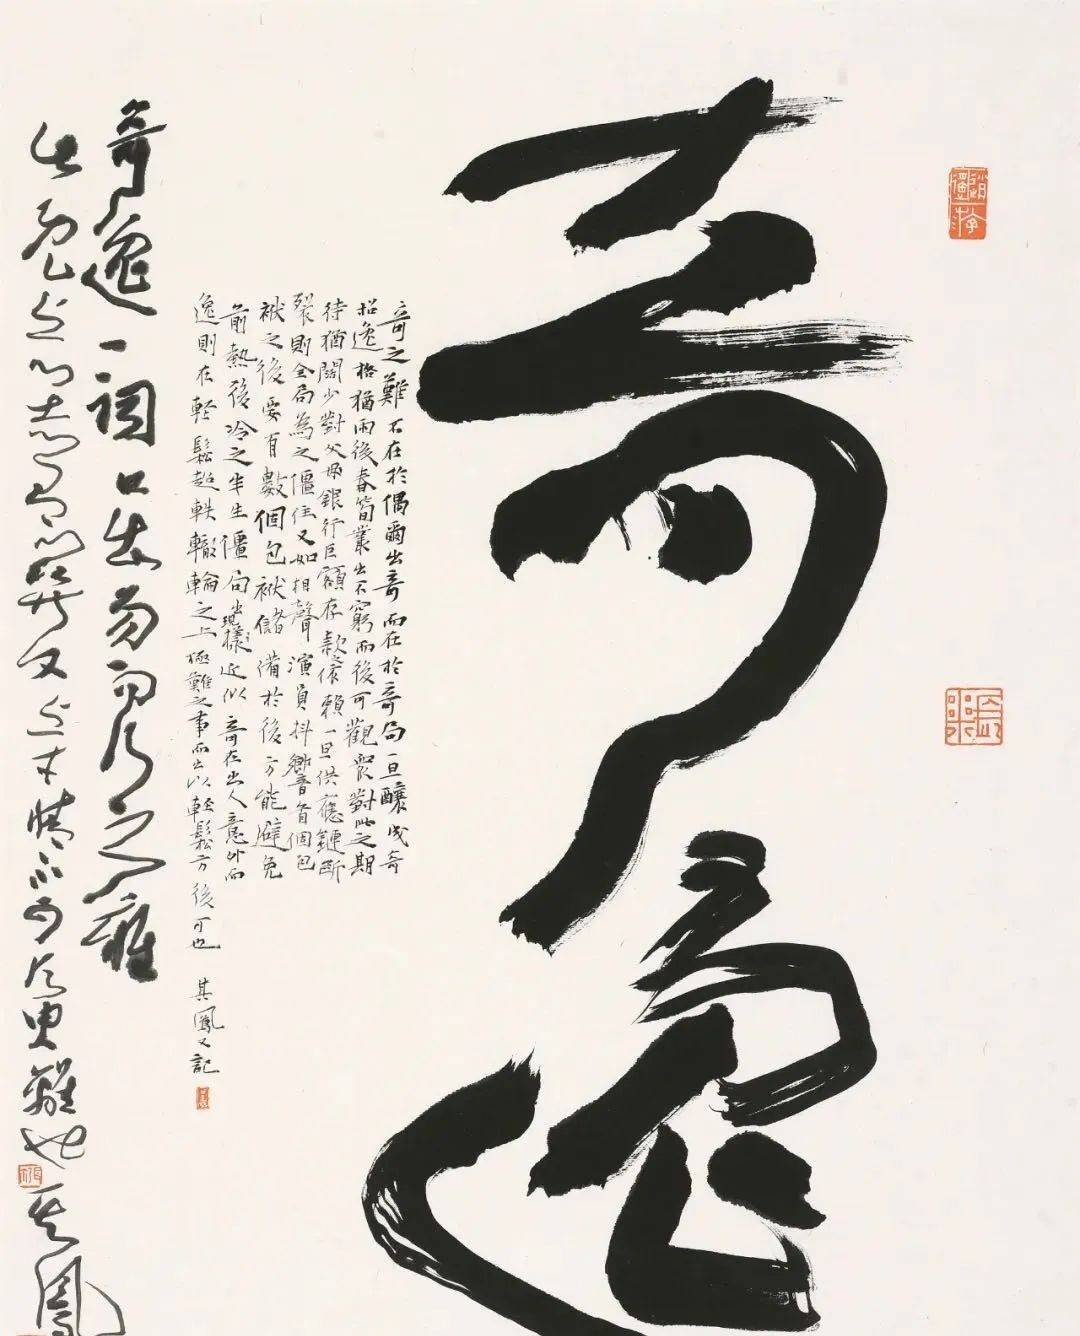 奇逸
奇之難不在於偶爾出奇而在於奇局一旦釀成奇
招逸格猶雨後春筍叢出不窮而後可觀眾對此之期
待猶闊少對父母銀行巨額存款依賴一旦供應鏈斷
裂則全局為之僵住又如相聲演員抖響首個包
袱之後要有數個包袱儲備於後方能避免
前熱後冷之半生僵句出現樣近似奇在出人意外而
逸則在輕鬆超軼轍輪之上極難之事而出以輕鬆方後可也 其鳳又記
奇逸一詞口出易而得之難
才情不可得更難也 其鳳